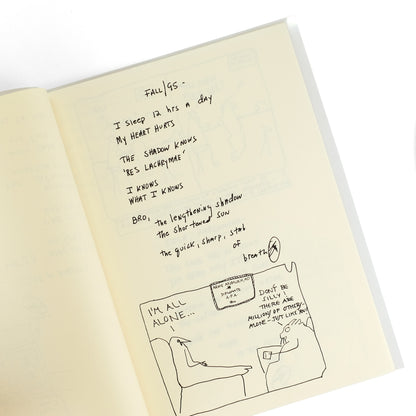 FALL/95-
I sleep 12 hrs a day
MY HEART HURTS
THE SHADOW KNOWS
'RES LACHRYMAE'
I KNOWS
WHAT I KNOWS
BRO, the lengthening shadow
the shortened sun
the quick, sharp, stab
of
breath
I'M ALL
ALONE...
DIPLOMATE
A.P.A.
DON'T BE
SILLY!
THERE ARE
MILLIONS OF OTHERS
MORE - JUST LIKE YOU